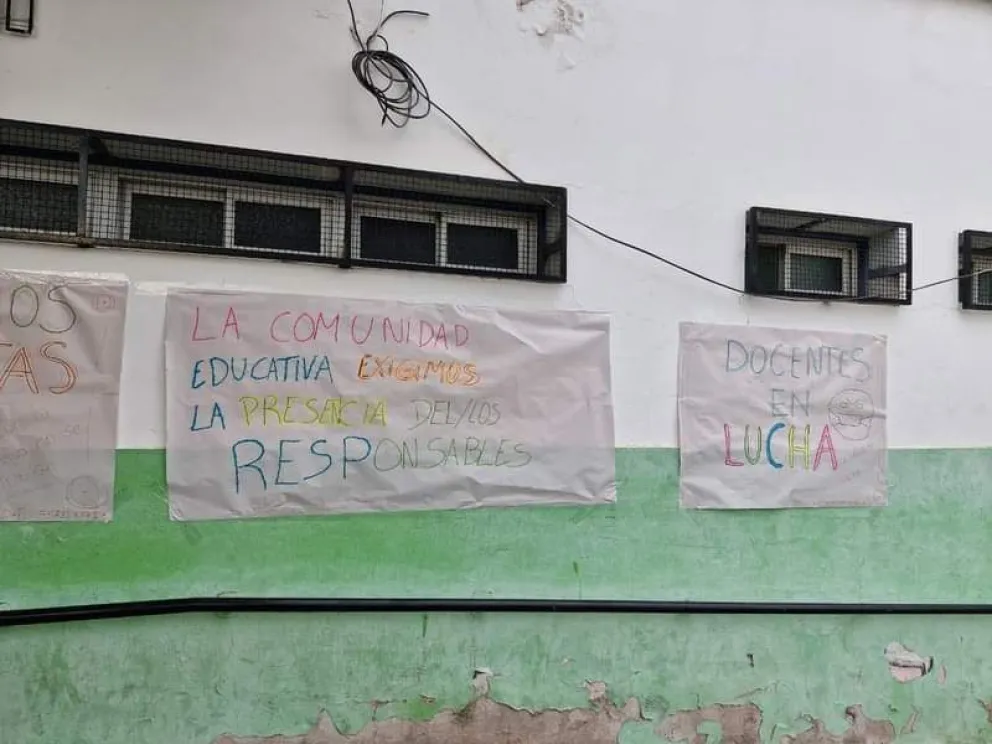 OS
AS
LA COMUNIDAD
EDUCATIVA EXIGIMOS
LA PRESENCIA DEL/LOS
RESPONSABLES
DOCENTES
EN
LUCHA